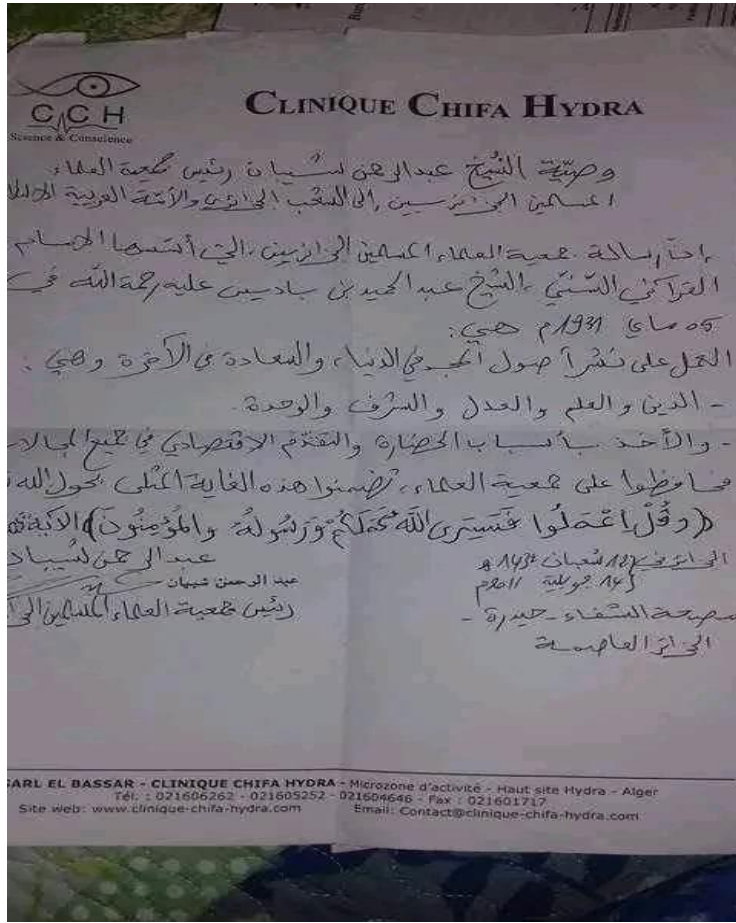 CCH
Science & Conscience
CLINIQUE CHIFA HYDRA
وصيّة الشيخ عبد الرحمن شيبان رئيس جمعية العلماء
المسلمين الجزائريين إلى الشعب الجزائري والأمة العربية
إنّ رسالة جمعية العلماء المسلمين الجزائريين، التي أسّسها الإمام
القرآني السّنّي، الشيخ عبد الحميد بن باديس عليه رحمة الله في
05 ماي 1931م هي:
العمل على نشر أصول المجد في الدنيا، والسعادة في الآخرة وهي:
- الدين والعلم والعدل والشرف والوحدة.
- والأخذ بأسباب الحضارة والتقدّم الاقتصادي في جميع المجالات
فحافظوا على جمعية العلماء، تضمنوا هذه الغاية المثلى بحول الله
(وَقُلْ اِعْمَلُوا فَسَيَرَى اللَّهُ عَمَلَكُمْ وَرَسُولُهُ وَالمُؤْمِنُونَ) الآية
الجزائر في 12 شعبان 1432 هـ عبد الرحمن شيبان
14 جويلية 2011م عبد الرحمن شيبان
رئيس جمعية العلماء المسلمين
مصحة الشفاء - حيدرة -
الجزائر العاصمة
SARL EL BASSAR - CLINIQUE CHIFA HYDRA - Microzone d'activité - Haut site Hydra - Alger
Tél. : 021606262 - 021605252 - 021604646 - Fax : 021601717
Site web: www.clinique-chifa-hydra.com Email: Contact@clinique-chifa-hydra.com